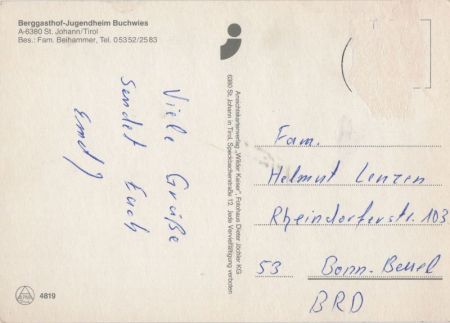 Berggasthof-Jugendheim Buchwies
A-6380 St. Johann/Tirol
Bes.: Fam. Beihammer, Tel. 05352/2583
Viele Grüße
sendet Euch
Ernst J
Ansichtskartenverlag „Wilder Kaiser“, Fotohaus Dieter Jöchler KG
6380 St. Johann in Tirol, Speckbacherstraße 12. Jede Vervielfältigung verboten
Fam.
Helmut Lenzen
Rheindorferstr. 103
53 Bonn-Beuel
BRD
4819